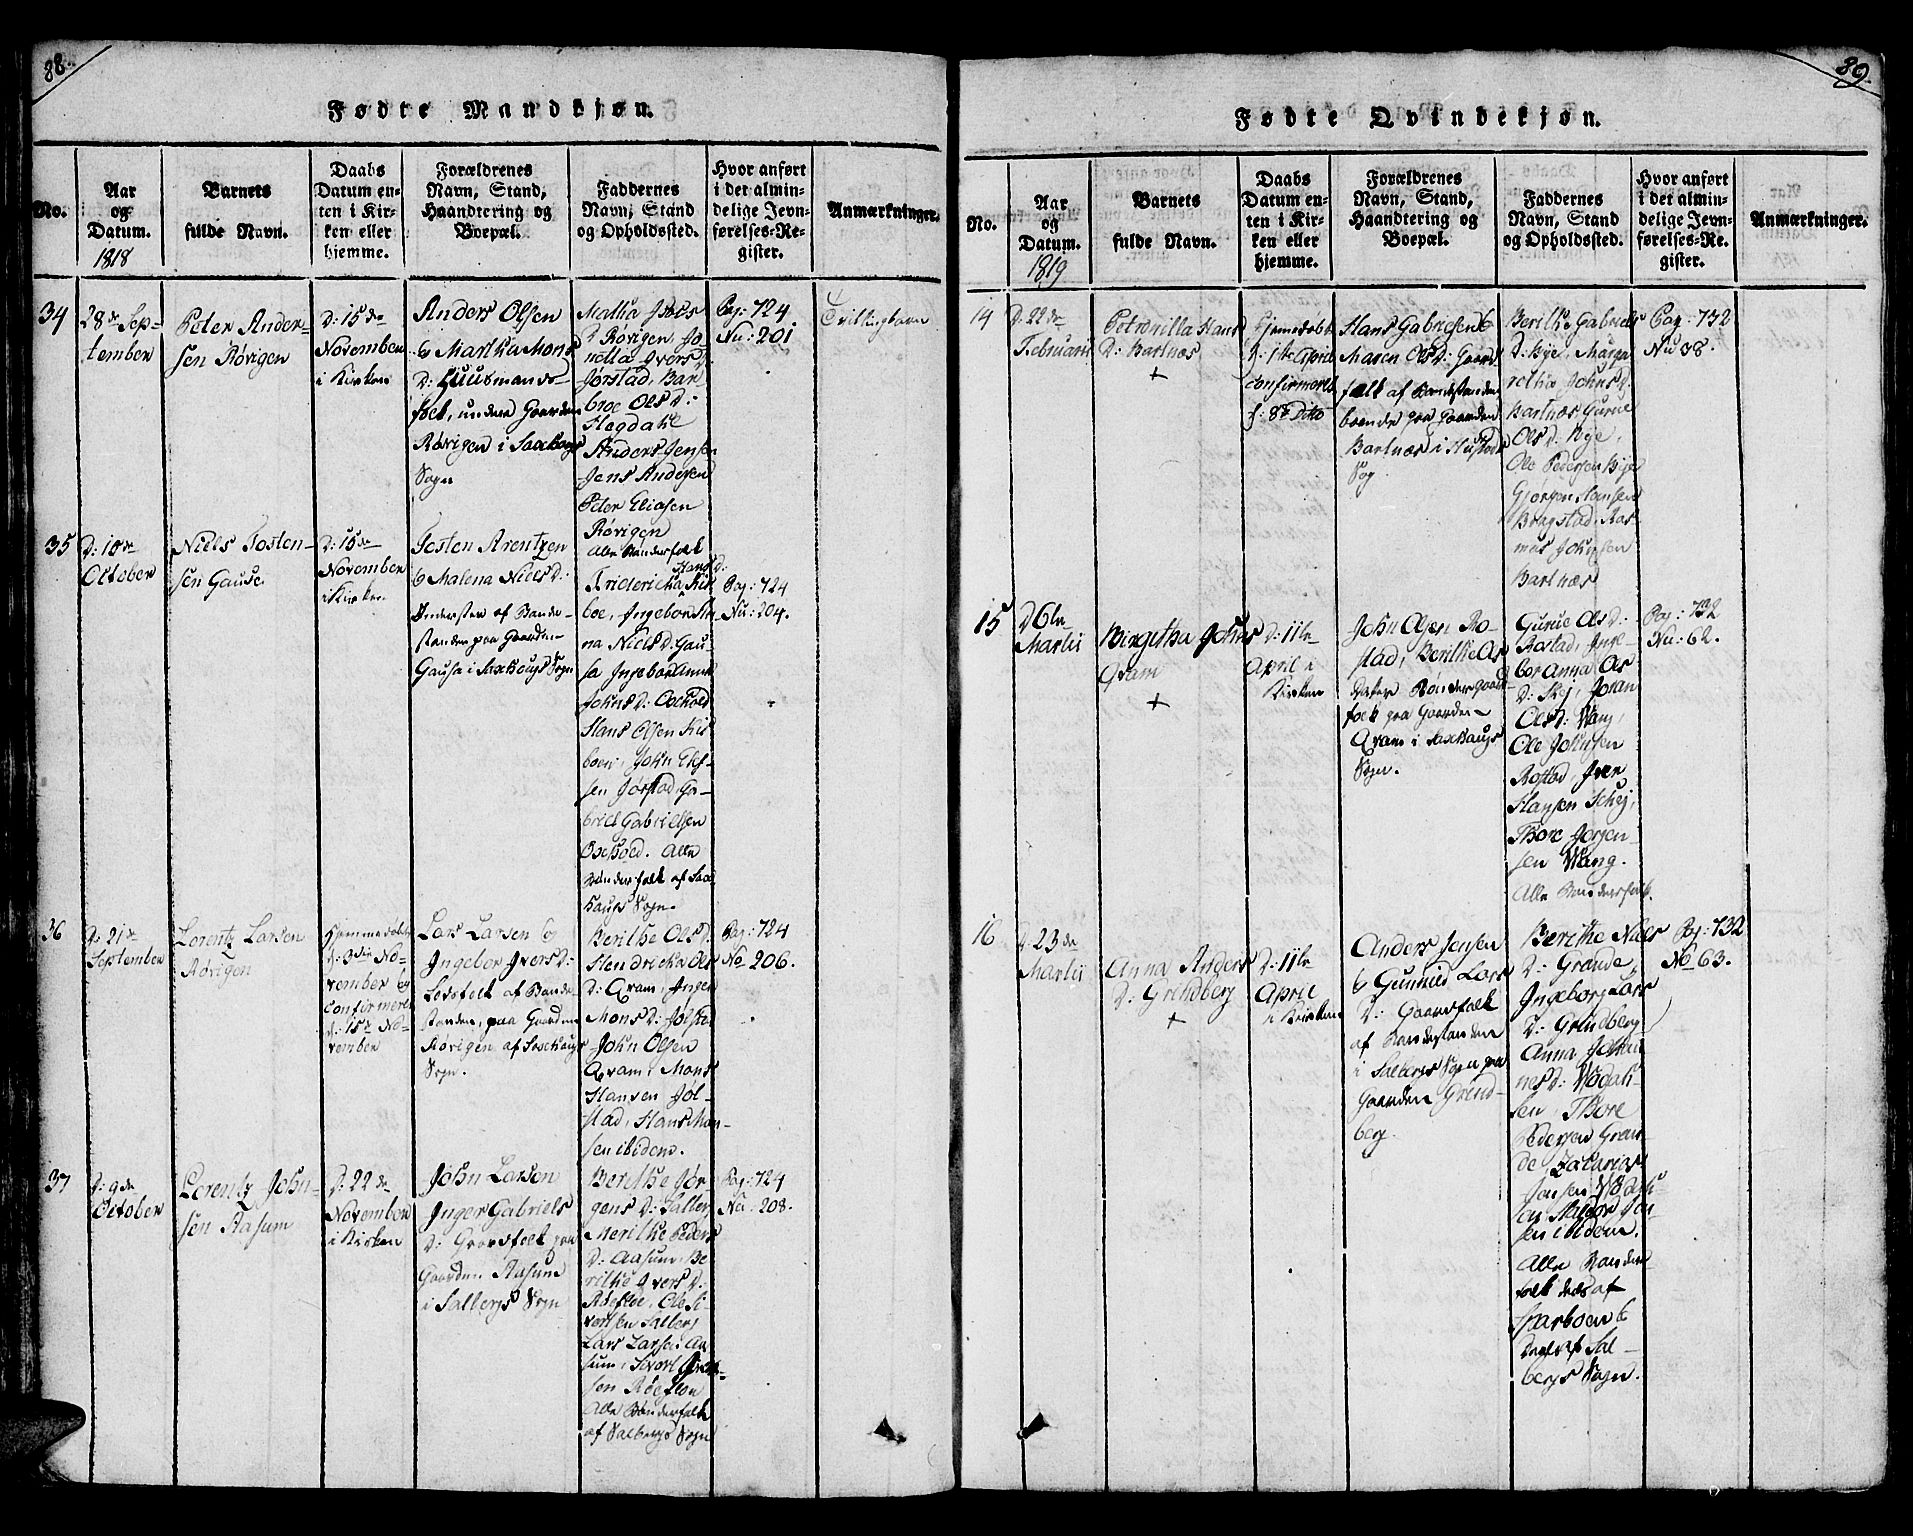 88.
Fødte Mandkjøn.
No.
Aar
og
Datum.
1818
Barnets
fulde Navn.
Daabs
Datum en-
ten i Kir-
ken eller
hjemme.
Forældrenes
Navn, Stand,
Haandtering og
Boepæl.
Faddernes
Navn, Stand
og Opholdssted.
Hvor anført
i det almin-
delige Jevn-
førelses-Re-
gister.
Anmærkninger.
34
28de Sep-
tember
Peter Ander-
sen Rørigen
D: 15de
November
i Kirken
Anders Olsen
& Martha Mons
D: Huusmands-
folk, under Gaarden
Rørigen i Saxhougs
Sogn
D: Rørigen, Jo-
netta Ivers D:
Jørstad, Bar
broe Ols D:
Hegdahl
Anders Jensen
Jens Andersen
Peter Eliasen
Rørigen
Alle Bønderfolk
Pag: 724
Nu: 201
Tvillingbarn
35
D: 10de
October
Niels Tosten-
sen Gause
D: 15de
November
i Kirken
Tosten Arentzen
& Malena Niels D:
Inderster af Bonde-
standen paa Gaarden
Gausa i Saxhougs Sogn
Hans D:
Friderica Kir
boe, Ingebor An-
na Niels D: Gau-
sa Ingebor Anna
Johns D:
Hans Olsen Kir
boen, John Elis-
sen Jørstad, Ga-
briel Gabrielsen
Oxehoed. Alle
Bønderfolk af Sax
hougs Sogn.
Pag: 724
Nu: 204.
36
D: 21de
September
Lorentz Larsen
Rørigen
Hjemmedøbt
d: 3die No-
vember og
confirmeret
d: 15de No-
vember
Lars Larsen &
Ingebor Ivers D:
Leddfolk af Bonde-
standen, paa Gaarden
Rørigen af Saxhougs
Sogn.
Berithe Ols D:
Hendricka Ols
D: Qvam, Inger
Mons D: Jølstad
John Olsen
Qvam, Mons
Hansen Jøl-
stad, Hans Mon-
sen ibidem.
Pag: 724
No 206.
37
D: 9de
October
Lorentz John-
sen Aasum
D: 22de
November
i Kirken
John Larsen
Inger Gabriels
D: Gaardfolk paa
Gaarden Aasum
i Salbergs Sogn
Berithe Jør-
gens D: Salberg
Merithe Peders
D: Aasum, Be
rithe Ivers D:
Røefloe, Ole Si-
vertsen Salberg
Lars Larsen Aa-
sum, Sivert
sen Røefloe
Alle Bønderfolk
af Salbergs Sogn
Pag: 724
Nu: 208.
89.
Fødte Qvindekjøn.
No.
Aar
og
Datum.
1819
Barnets
fulde Navn.
Daabs
Datum en-
ten i Kir-
ken eller
hjemme.
Forældrenes
Navn, Stand,
Haandtering og
Boepæl.
Faddernes
Navn, Stand
og Opholdssted.
Hvor anført
i det almin-
delige Jevn-
førelses-Re-
gister.
Anmærkninger.
14
D: 22de
Februarii
Petronilla Hans
D: Bartnæs
+
Hjemmedøbt
d: 1ste April
confirmeret
d: 8de Ditto
Hans Gabrielsen &
Maren Ols D: Gaard
folk af Bondestanden
boende paa Gaarden
Bartnæs i Hustads
Sog
Berithe Gabriels
D: Bye, Marga
rethe Johns D:
Bartnæs Gurue
Ols D: Bye,
Ole Pedersen Bye
Gjørgen Hansen
Bragstad, Ras-
mus Johnsen
Bartnæs
Pag: 732
Nu 38.
15
D 6te
Martii
Birgitha Johns
Qvam
+
D: 11te
April i
Kirken
John Olsen Ro-
stad, Berithe Ols
Datter Bønder gaard-
folk paa Gaarden
Qvam i Saxhougs
Sogn.
Gurue Ols D:
Rostad, Inge-
bor Anna Ols
D: Skej, Joran
Ols D: Wang,
Ole Johnsen
Rostad, Iver
Hansen Schej,
Thore Jørgen-
sen Wang.
Alle Bønderfolk.
Pag: 732
Nu: 62.
16
D: 23de
Martii
Anna Anders
D: Grindberg
+
D: 11te
April
i Kirken
Anders Jensen
& Gunnild Lars
D: Gaardfolk
af Bondestanden
i Salbergs Sogn paa
Gaarden Grind-
berg.
Berithe Niels
D: Grande,
Ingeborg Lars
D: Grindberg,
Anna Johan
nes D:
Thore
Pedersen Gran-
de Zacarias
Jensen
sen ibidem.
Alle Bønder
folk deels af
Sparboen &
deels af Sal-
bergs Sogn.
Pag: 732
No 63.